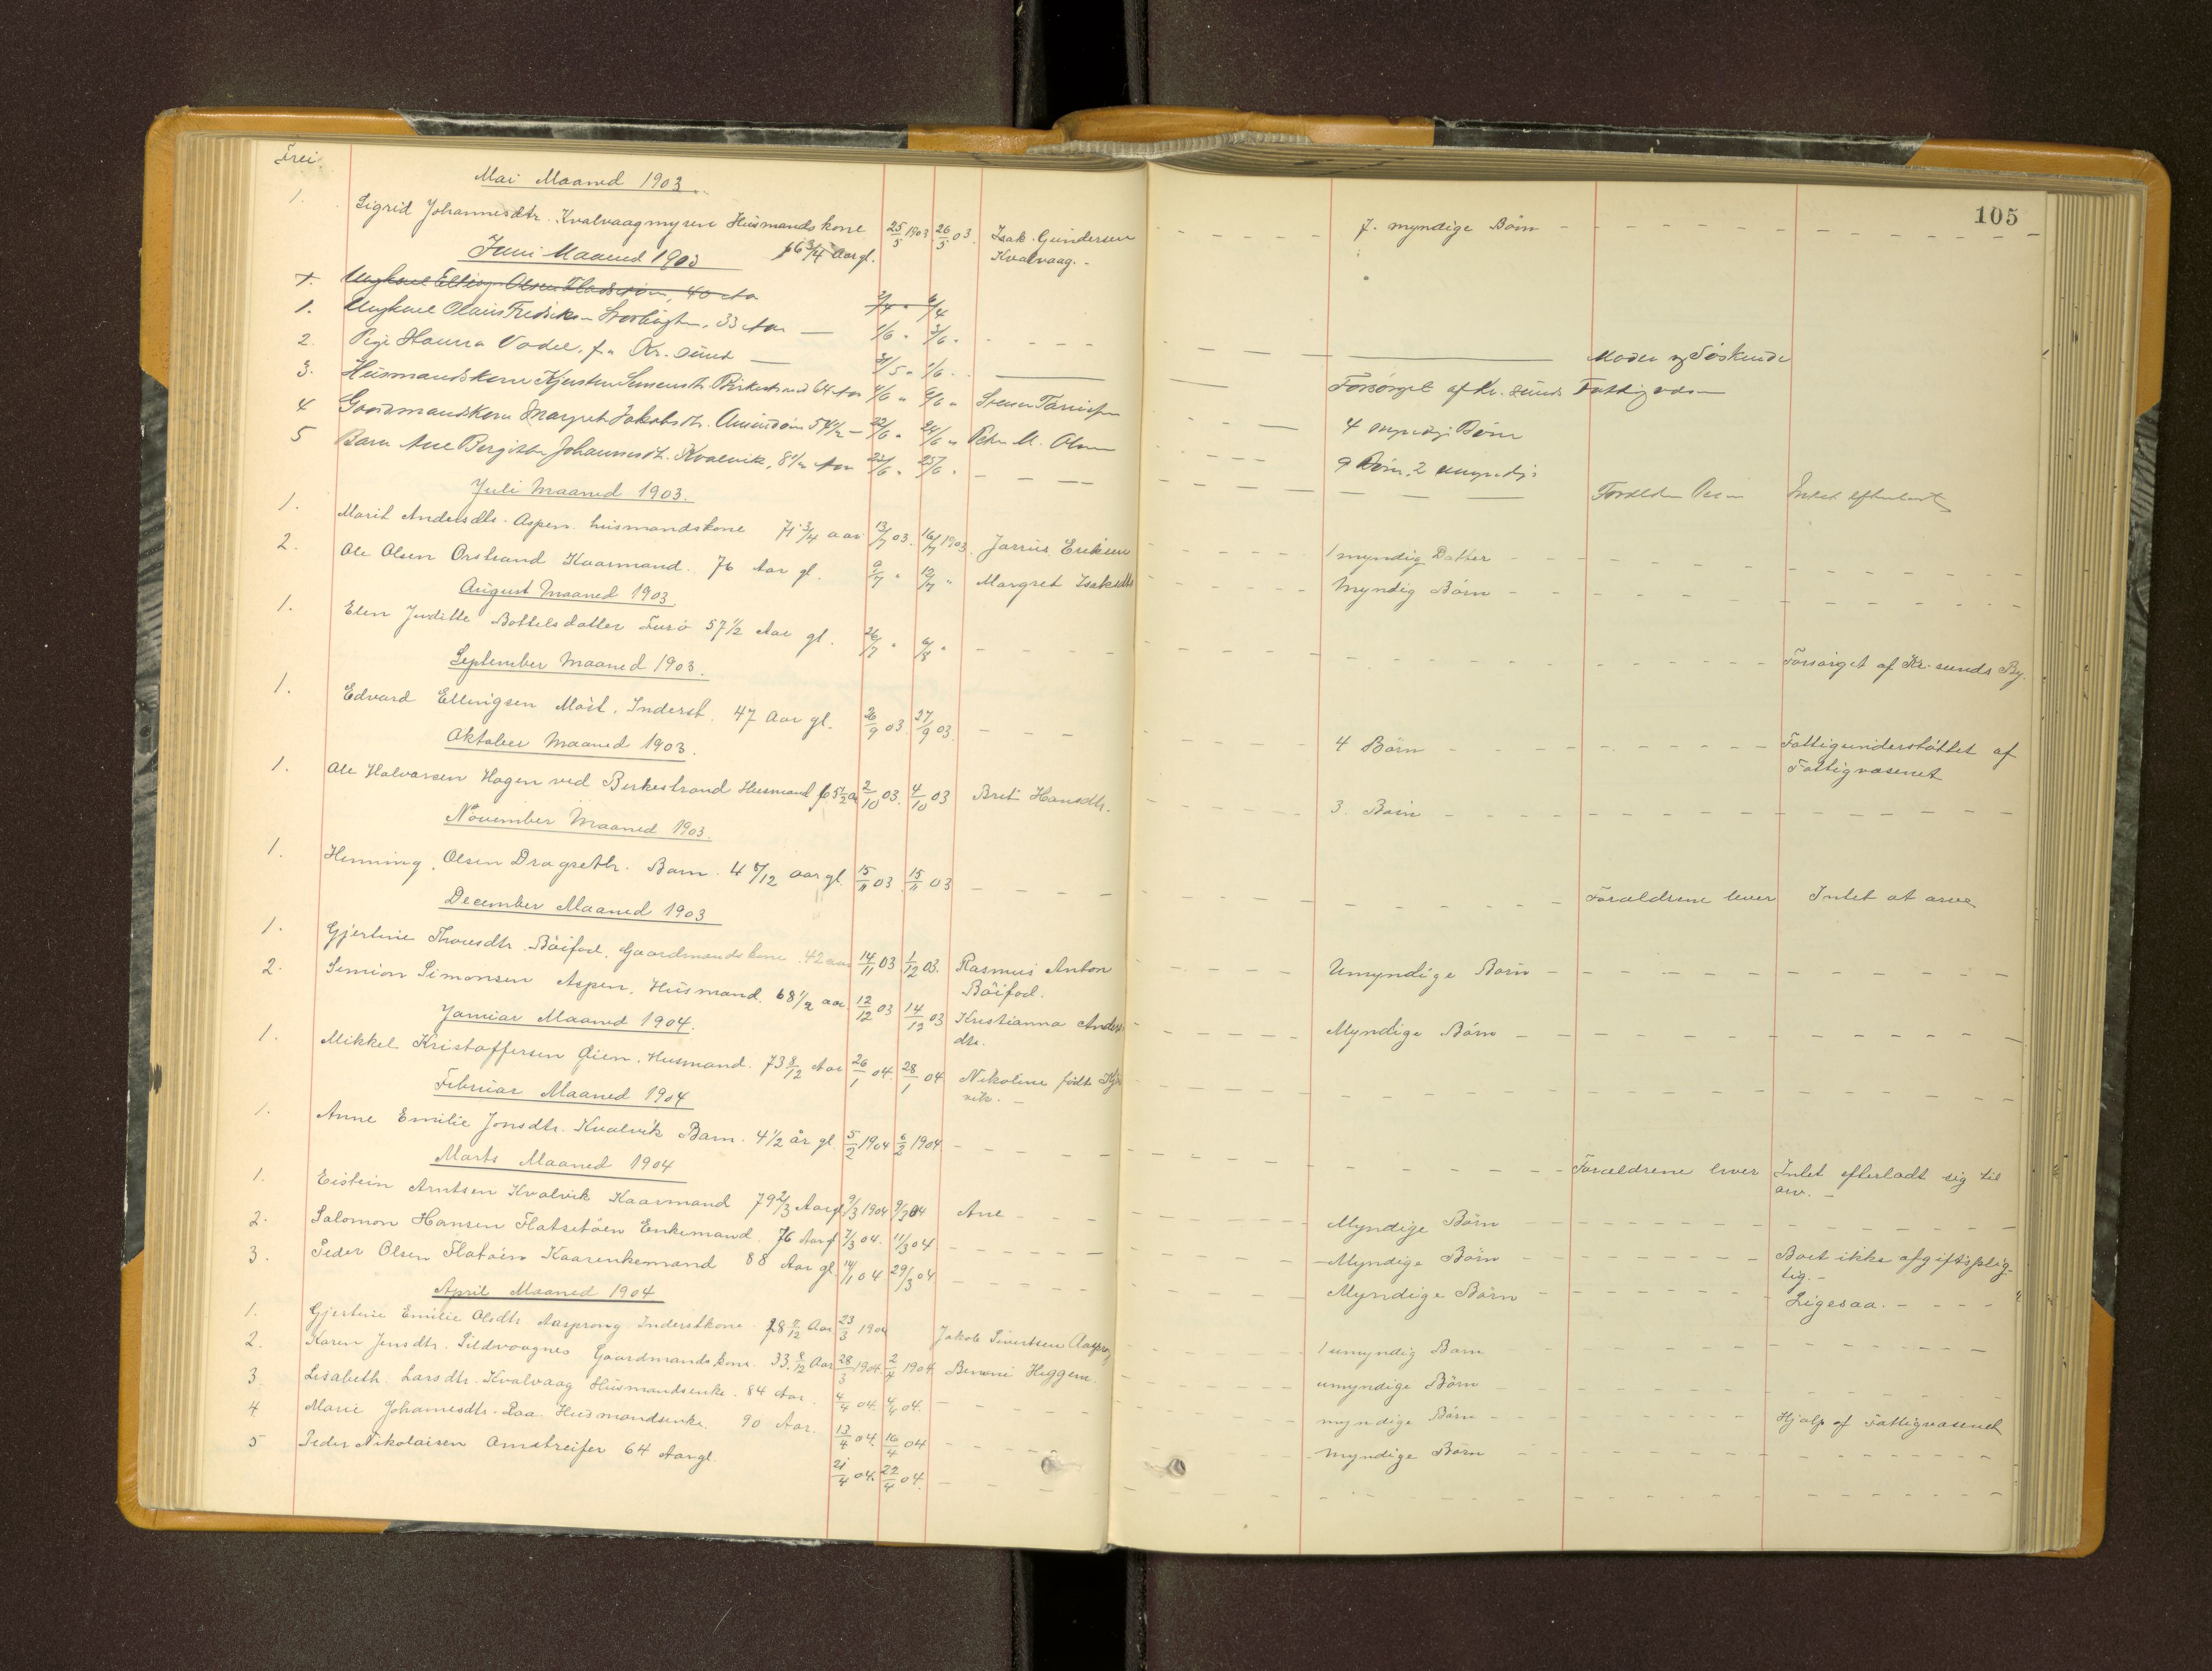 Frei.
105
Mai Maaned 1903.
1. Sigrid Johannesdtr. Kvalvaagmyren Husmandskone 66 3/4 Aar gl. 25/5 1903 26/5 03. Isak Gundersen Kvalvaag. - 7. myndige Börn
Juni Maaned 1903
Ungkarl Olsen 40 Aar 2/4 " 6/4
1. Ungkarl Olaus Fredriks 33 Aar 1/6 " 3/6 " Moder og Söskende
2. Pige Hanna f. Kr. sund 1/6 Forsörget af Kr. sunds Fattigv
3. Husmandskone Kjersten Birkestrand 64 Aar 4/6 " 6/6 " 4 myndige Börn
4 Gaardmandskone Margret Jakobsdtr. 54 1/2 22/6 " 24/6 " Peder M. Olsen 9 Börn, 2 umyndige
5 Barn Ane Bergitte Johannesdt. Kvalvik, 8 1/2 Aar 22/6 " 25/6 " Intet efterladt
Juli Maaned 1903.
1. Marit Andersdtr. Aspen. husmandskone 71 3/4 aar 13/7 03. 16/7 1903. Jarrus Eriksen 1 myndig Datter
2. Ole Olsen Orstrand Kaarmand. 76 Aar gl. 9/7 " 12/7 " Margret Isaksdtr Myndig Börn
August Maaned 1903
1. Elen Juditte Bottelsdatter Furö 57 1/2 Aar gl. 26/7 " 6/8 " Forsörget af Kr. sunds By.
September Maaned 1903.
1. Edvard Ellingsen Möst. Inderst. 47 Aar gl. 26/9 03. 27/9 03. 4 Börn Fattigunderstöttet af Fattigvæsenet
Oktober Maaned 1903.
1. Ole Halvorsen Hagen ved Birkestrand Husmand 65 1/2 a 2/10 03. 4/10 03 Brit Hansdtr. 3. Börn
November Maaned 1903.
1. Henning Olsen Dragseth. Barn. 4 5/12 aar gl. 15/11 03 15/11 03 Forældrene lever Intet at arve
December Maaned 1903
1. Gjertine Thoresdtr. Böifod. Gaardmandskone. 42 aar 14/11 03 1/12 03. Rasmus Anton Böifod. Umyndige Börn
2. Simion Simonsen Aspen. Husmand. 68 1/2 aar 12/12 03 14/12 03 Kristianna Anders dtr. Myndige Börn
Januar Maaned 1904.
1. Mikkel Kristoffersen Öien. Husmand. 73 8/12 Aar 26/1 04. 28/1 04 Nikoline født
Februar Maaned 1904
1. Anne Emilie Jonsdtr. Kvalvik Barn. 4 1/2 år gl. 5/2 1904 6/2 1904. Forældrene lever Intet efterladt sig til arv. -
Marts Maaned 1904
1. Eistein Arntsen Kvalvik Kaarmand 79 2/3 Aar gl 9/3 1904 Ane Myndige Börn
2. Salomon Hansen Flatsetöen Enkemand. 76 Aar gl 7/3 04. 11/3 04 Myndige Börn Boet ikke afgiftspligtig. -
3. Peder Olsen Flatöen Kaarenkemand 88 Aar gl. 14/1 04 29/3 04 Myndige Börn Ligesaa.
April Maaned 1904
1. Gjertine Emilie Olsdtr. Aasprong Inderstkone. 28 7/12 Aar 23/3 1904 Jakob Sivertsen Aasprong 1 umyndig Barn
2. Karen Jensdtr. Sildvaagnes Gaardmandskone. 33 8/12 Aar 28/3 1904. 2/4 1904 Benoni Heggem. umyndige Börn
3. Lisabeth Larsdtr. Kvalvaag Husmandsenke. 84 Aar. 4/4 04. 4/4 04. myndige Börn Hjælp af Fattigvæsenet
4 Marie Johannesdtr. Raa. Husmandsenke. 90 Aar. 13/4 04. 16/4 04 myndige Börn
5 Peder Nikolaisen Omstreifer 64 Aar gl. 21/4 04. 22/4 04.